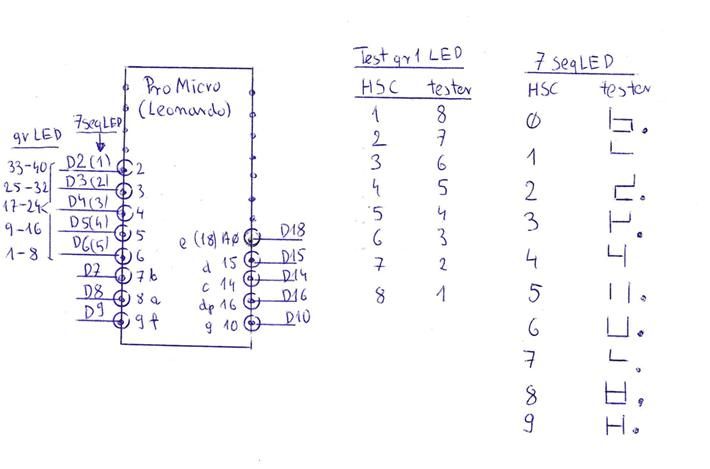 Pro Micro
(Leonardo)
gr LED
7seqLED
33-40
D2(1)
2
25-32
D3(2)
3
17-24
D4(3)
4
9-16
D5(4)
5
1-8
D6(5)
6
D7
7 b
D8
8 a
D9
9 f
e (18) A0
D18
d 15
D15
c 14
D14
dp 16
D16
g 10
D10
Test gr 1 LED
HSC tester
1 8
2 7
3 6
4 5
5 4
6 3
7 2
8 1
7 seqLED
HSC tester
0
1
2
3
4
5
6
7
8
9